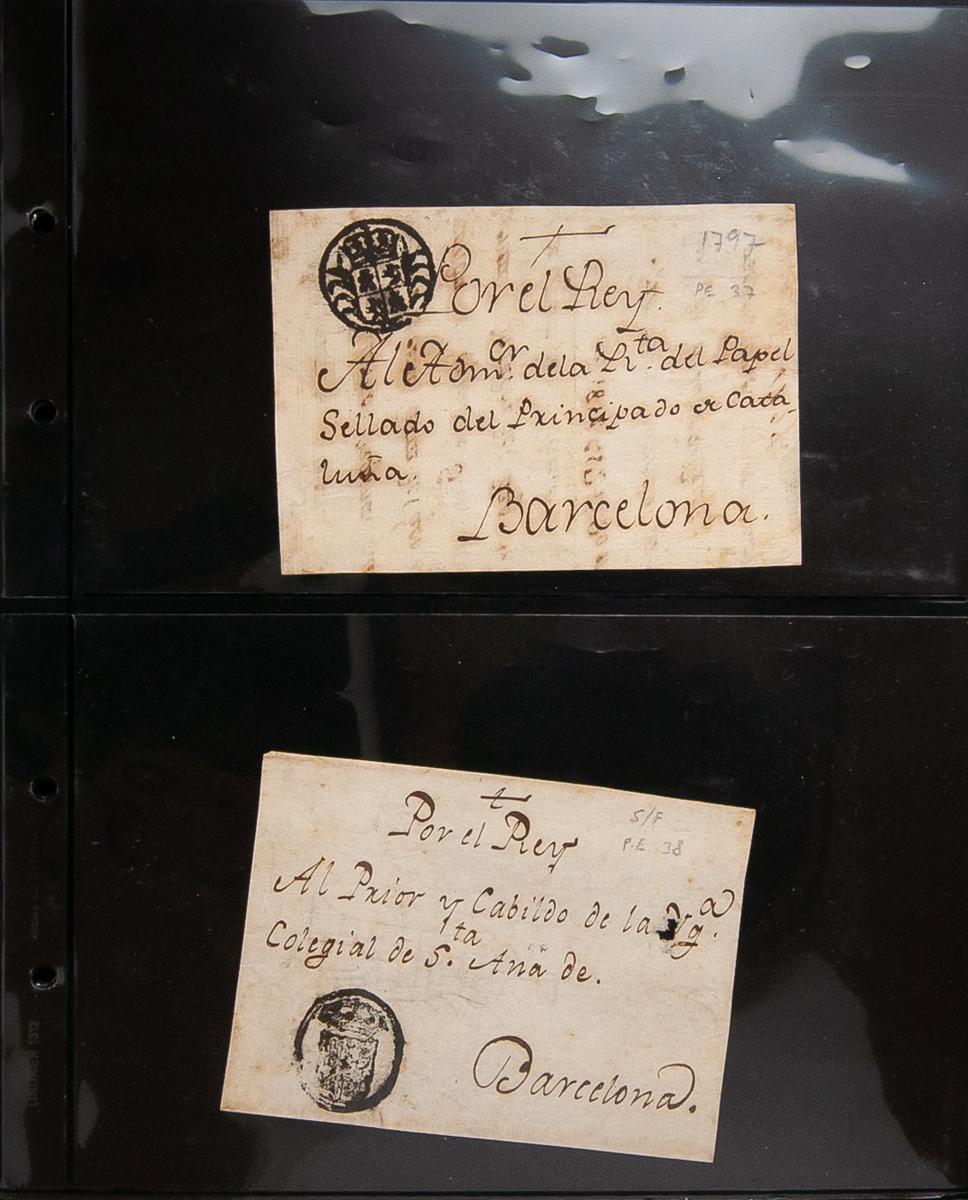 1797
PE 37
Por el Rey.
Al Admor. dela Rta. del Papel
Sellado del Principado de Cata-
luña.
Barcelona.
S/F
P.E. 38
Por el Rey
Al Prior y Cabildo de la Yga.
Colegial de Sta. Ana de.
Barcelona.